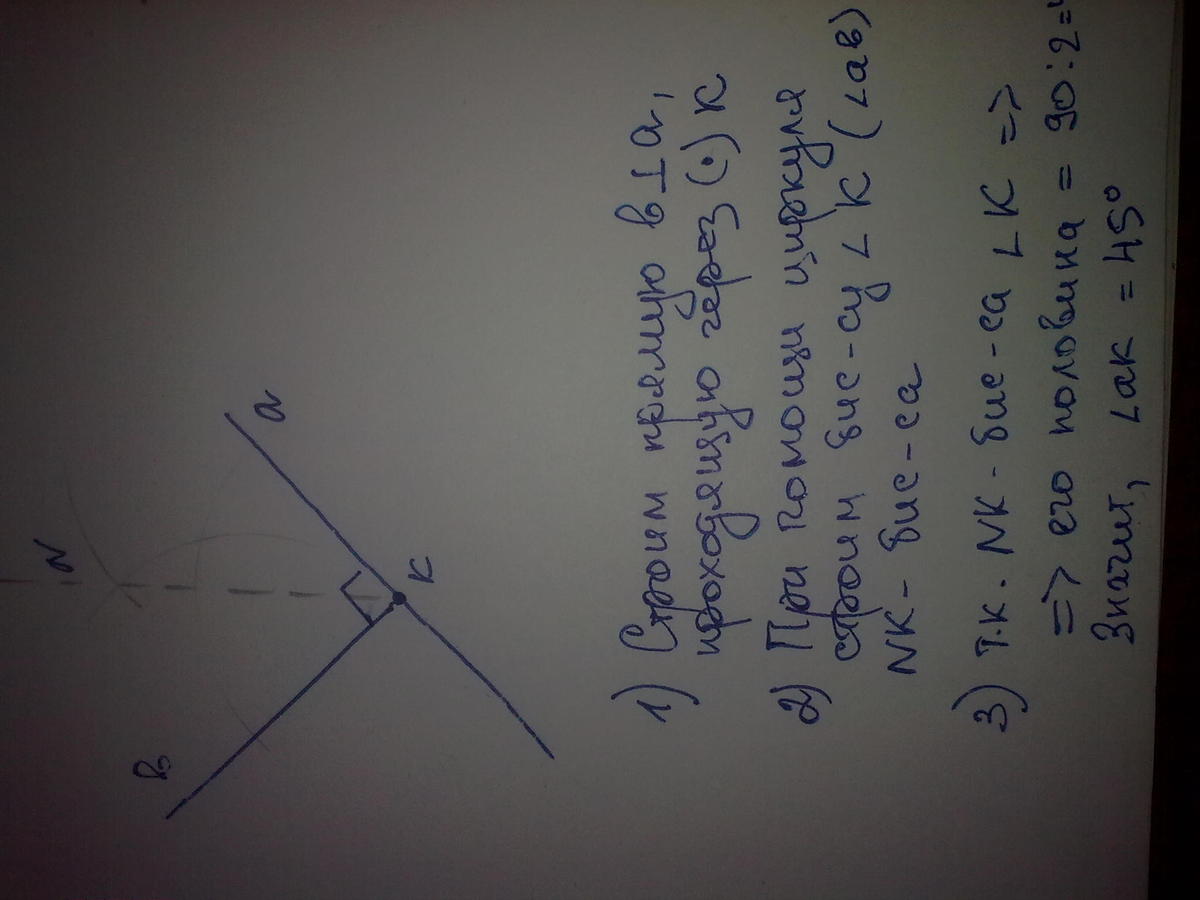 N
в
а
К
1) Строим прямую в ⊥ а,
проходящую через (·) К
2) При помощи циркуля
строим бис-су ∠ К (∠ав)
NK - бис-са
3) Т.к. NK - бис-са ∠ К =>
=> его половина = 90:2=
Значит, ∠aк = 45°